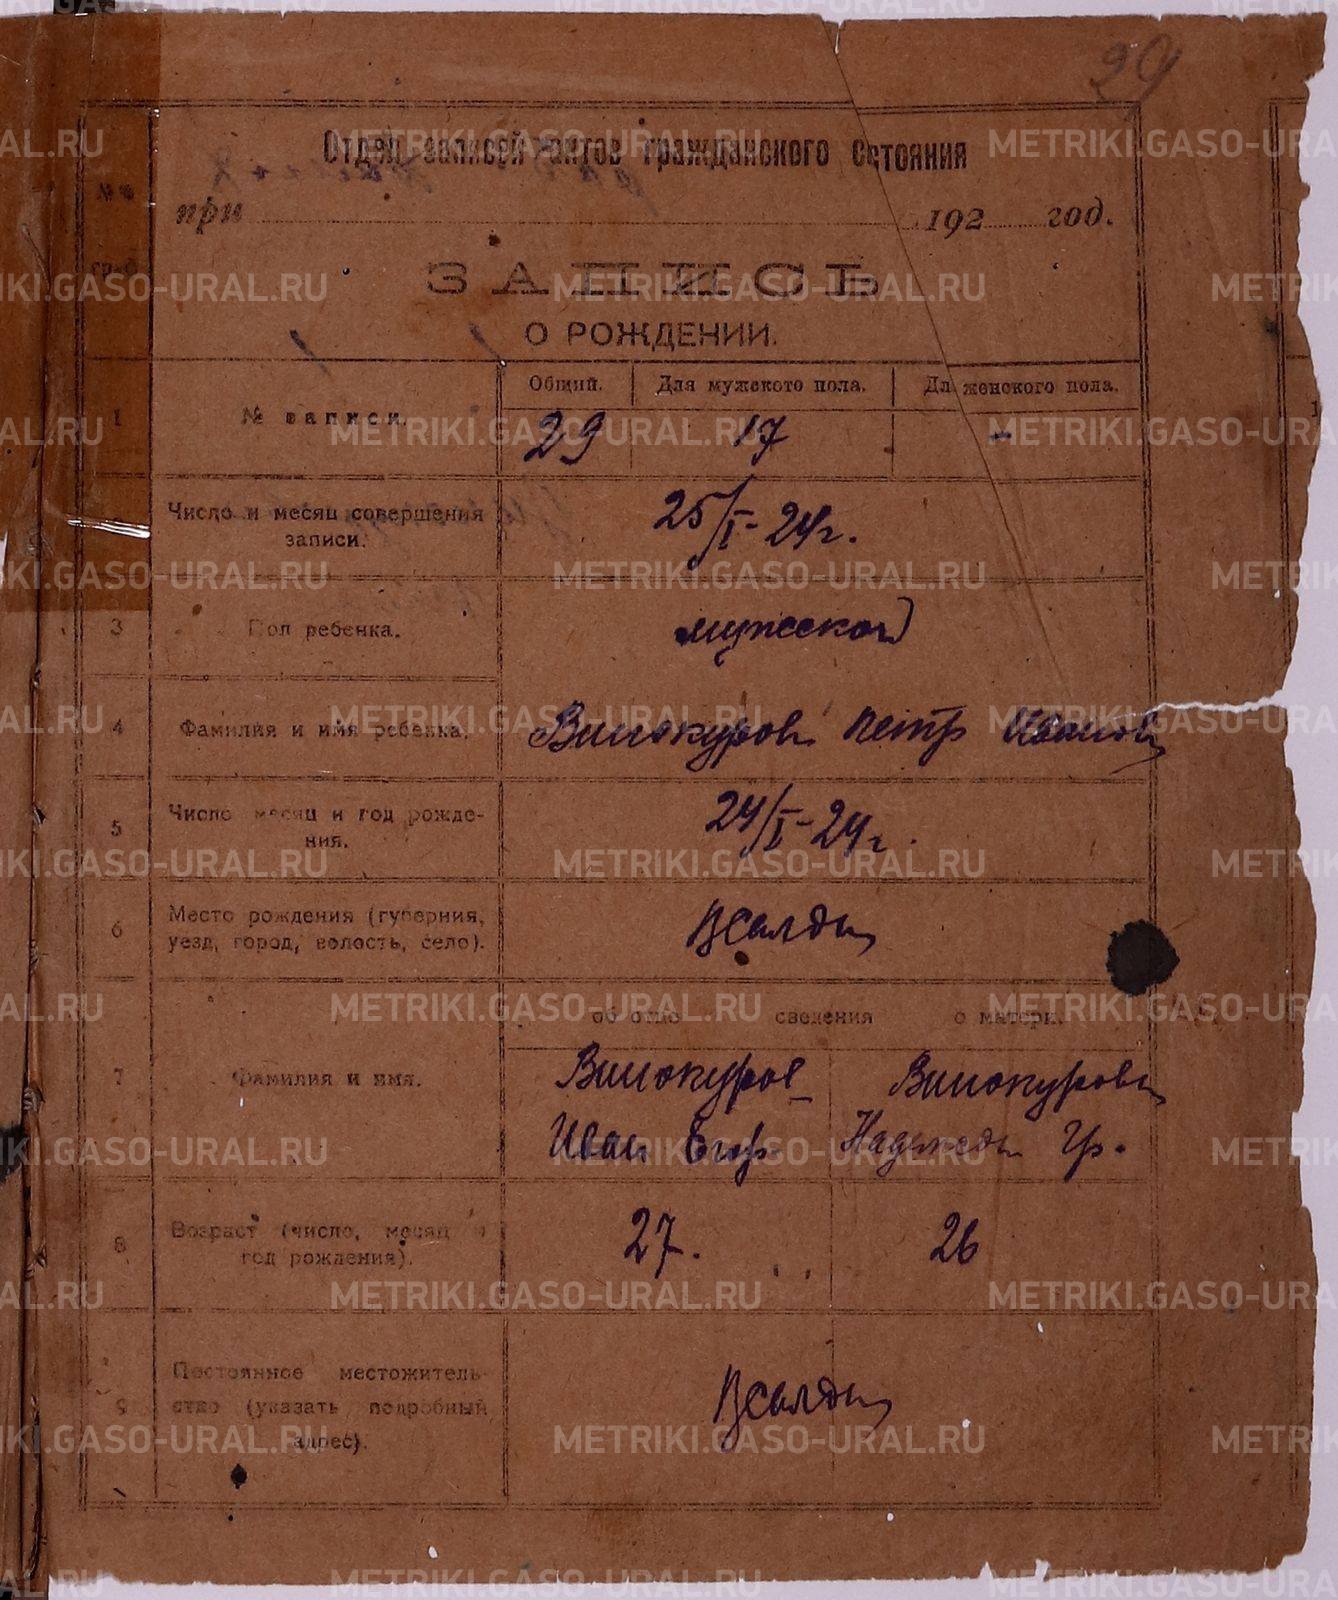 29
Отдел записей актов гражданского состояния
№№
при 192 год.
гр-ф
ЗАПИСЬ
О РОЖДЕНИИ.
Общий. Для мужского пола. Для женского пола.
1 № записи. 29 17 -
Число и месяц совершения
записи. 25/I-24г.
3 Пол ребенка. мужской
4 Фамилия и имя ребенка. Винокуров Петр Иванов
5 Число месяц и год рожде-
ния. 24/I-24г.
6 Место рождения (губерния,
уезд, город, волость, село). ВСалда
об отце сведения о матери.
7 Фамилия и имя. Винокуров Винокурова
Иван Егор. Надежда Гр.
8 Возраст (число, месяц и
год рождения). 27. 26
Постоянное местожитель-
9 ство (указать подробный ВСалда
адрес).
METRIKI.GASO-URAL.RU